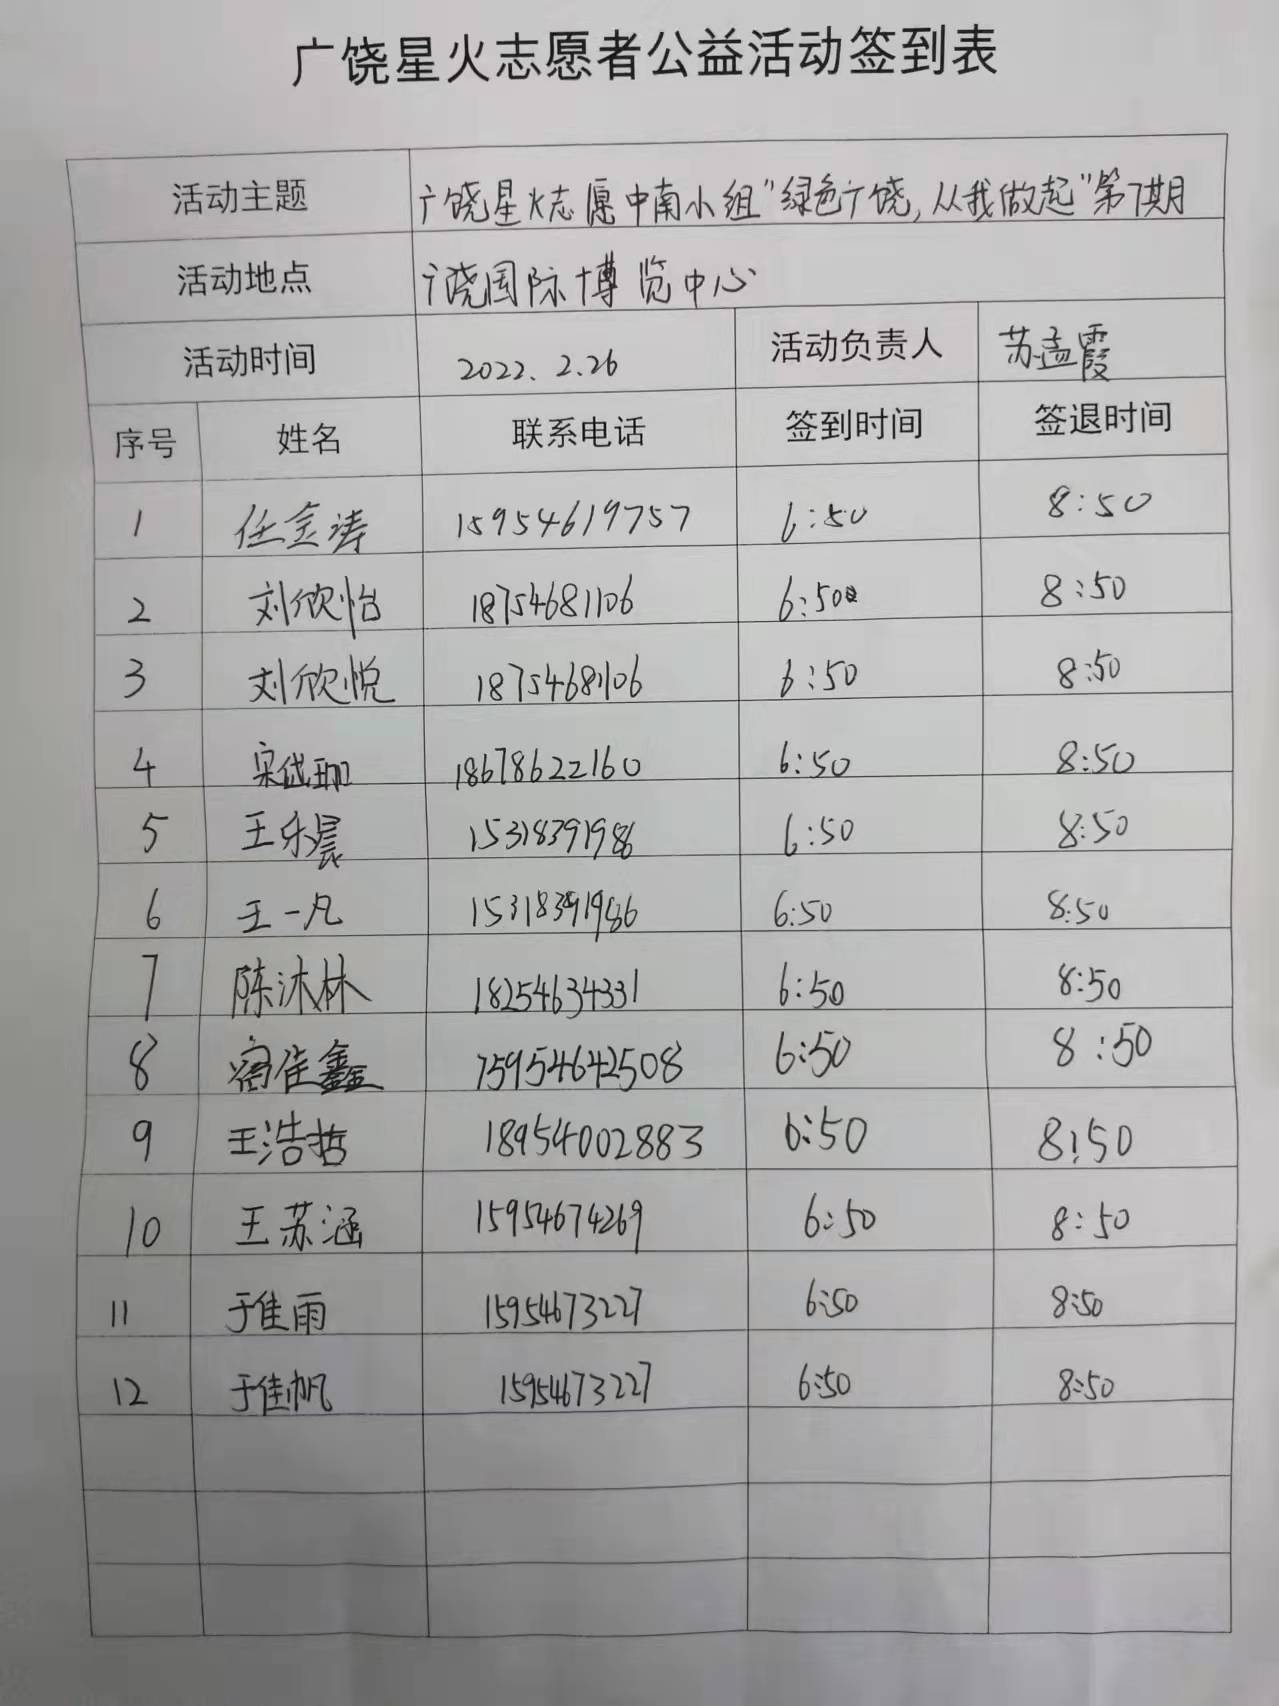 广饶星火志愿者公益活动签到表
活动主题 广饶星火志愿中南小组"绿色广饶,从我做起"第7期
活动地点 广饶国际博览中心
活动时间 2022.2.26 活动负责人 苏孟霞
序号 姓名 联系电话 签到时间 签退时间
1 任金涛 15954619757 6:50 8:50
2 刘欣怡 18754681106 6:50 8:50
3 刘欣悦 18754681106 6:50 8:50
4 宋岱珈 18678622160 6:50 8:50
5 王乐晨 15318391986 6:50 8:50
6 王一凡 15318391986 6:50 8:50
7 陈沐林 18254634331 6:50 8:50
8 佳鑫 15954642508 6:50 8:50
9 王浩哲 18954002883 6:50 8:50
10 王苏涵 15954674269 6:50 8:50
11 于佳雨 15954673227 6:50 8:50
12 于佳帆 15954673227 6:50 8:50